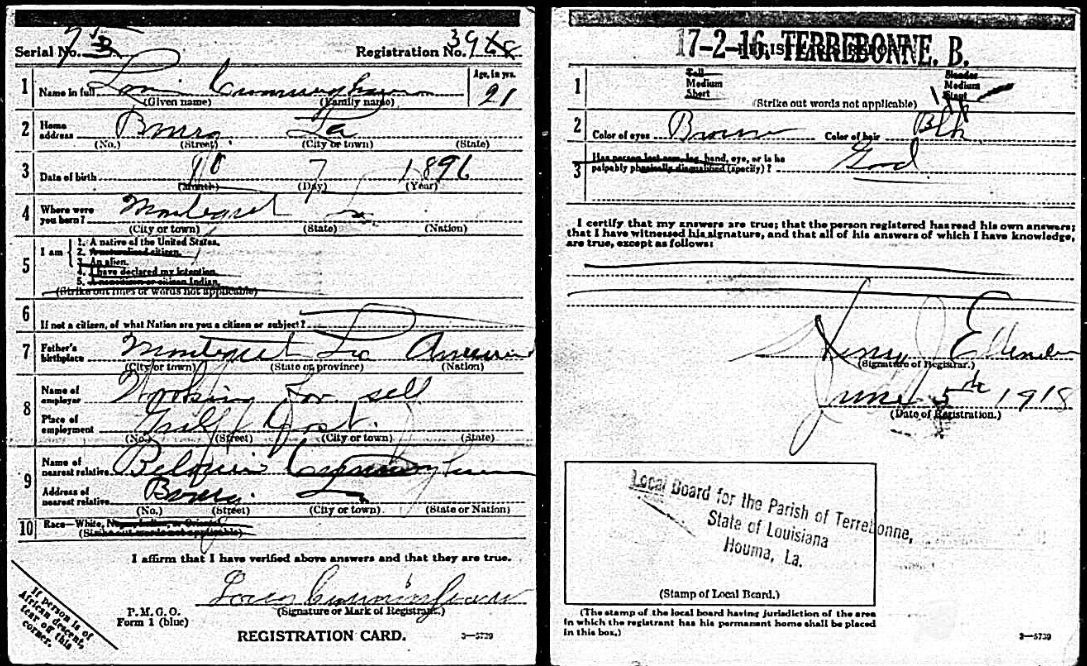 Serial No. 75
Registration No. 39
1 Name in full Cunningham Age, in yrs. 21
(Given name) (Family name)
2 Home address Bourg La
(No.) (Street) (City or town) (State)
3 Date of birth 10 7 1896
(Month) (Day) (Year)
4 Where were you born? Montegut La
(City or town) (State) (Nation)
5 I am
1. A native of the United States.
2. A naturalized citizen.
3. An alien.
4. I have declared my intention.
5. A noncitizen or citizen Indian.
(Strike out lines or words not applicable)
6 If not a citizen, of what Nation are you a citizen or subject?
7 Father's birthplace Montegut La America
(City or town) (State or province) (Nation)
8 Name of employer Working for self
Place of employment
(No.) (Street) (City or town) (State)
9 Name of nearest relative Cunningham
Address of nearest relative Bourg. La
(No.) (Street) (City or town) (State or Nation)
10 Race—White, Negro, Indian, or Oriental
(Strike out words not applicable)
I affirm that I have verified above answers and that they are true.
Cunningham
(Signature or Mark of Registrant.)
P. M. G. O.
Form 1 (blue)
REGISTRATION CARD.
3—5729
If person is of
African descent,
tear off this
corner.
17-2-16. TERREBONNE. B.
REGISTRAR'S REPORT
1
Tall
Medium
Short
Slender
Medium
Stout
(Strike out words not applicable)
2 Color of eyes Brown Color of hair Blk
3 Has person lost arm, leg, hand, eye, or is he
palpably physically disqualified (specify)? Good
I certify that my answers are true; that the person registered has read his own answers;
that I have witnessed his signature, and that all of his answers of which I have knowledge,
are true, except as follows:
Henry J Ellender
(Signature of Registrar.)
June 5th 1918
(Date of Registration.)
Local Board for the Parish of Terrebonne,
State of Louisiana
Houma, La.
(Stamp of Local Board.)
(The stamp of the local board having jurisdiction of the area
in which the registrant has his permanent home shall be placed
in this box.)
3—5729